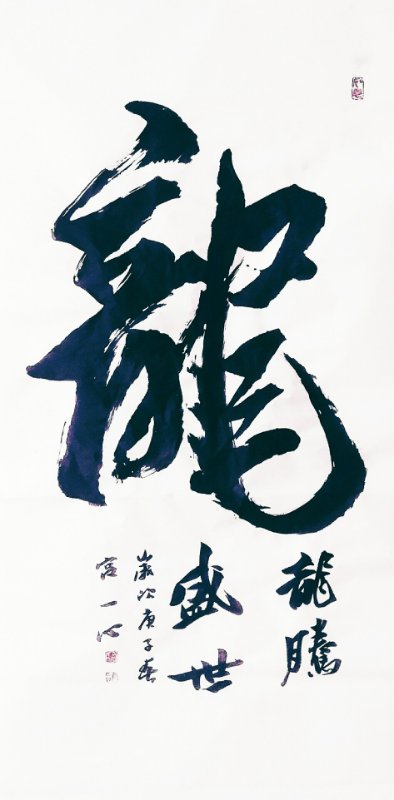 龍
龍騰
盛世
歲次庚子春
宫一心